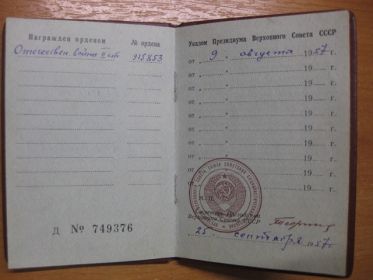 Награжден орденом
№ ордена
Отечествен. войны II ст.
915853
Д № 749376
Указом Президиума Верховного Совета СССР
от " 9 " августа 1957 г.
от " " 19 г.
от " " 19 г.
от " " 19 г.
от " " 19 г.
от " " 19 г.
от " " 19 г.
от " " 19 г.
от 19 г.
М.П.
Секретарь Президиума
Верховного Совета СССР
"25" сентября 1957 г.